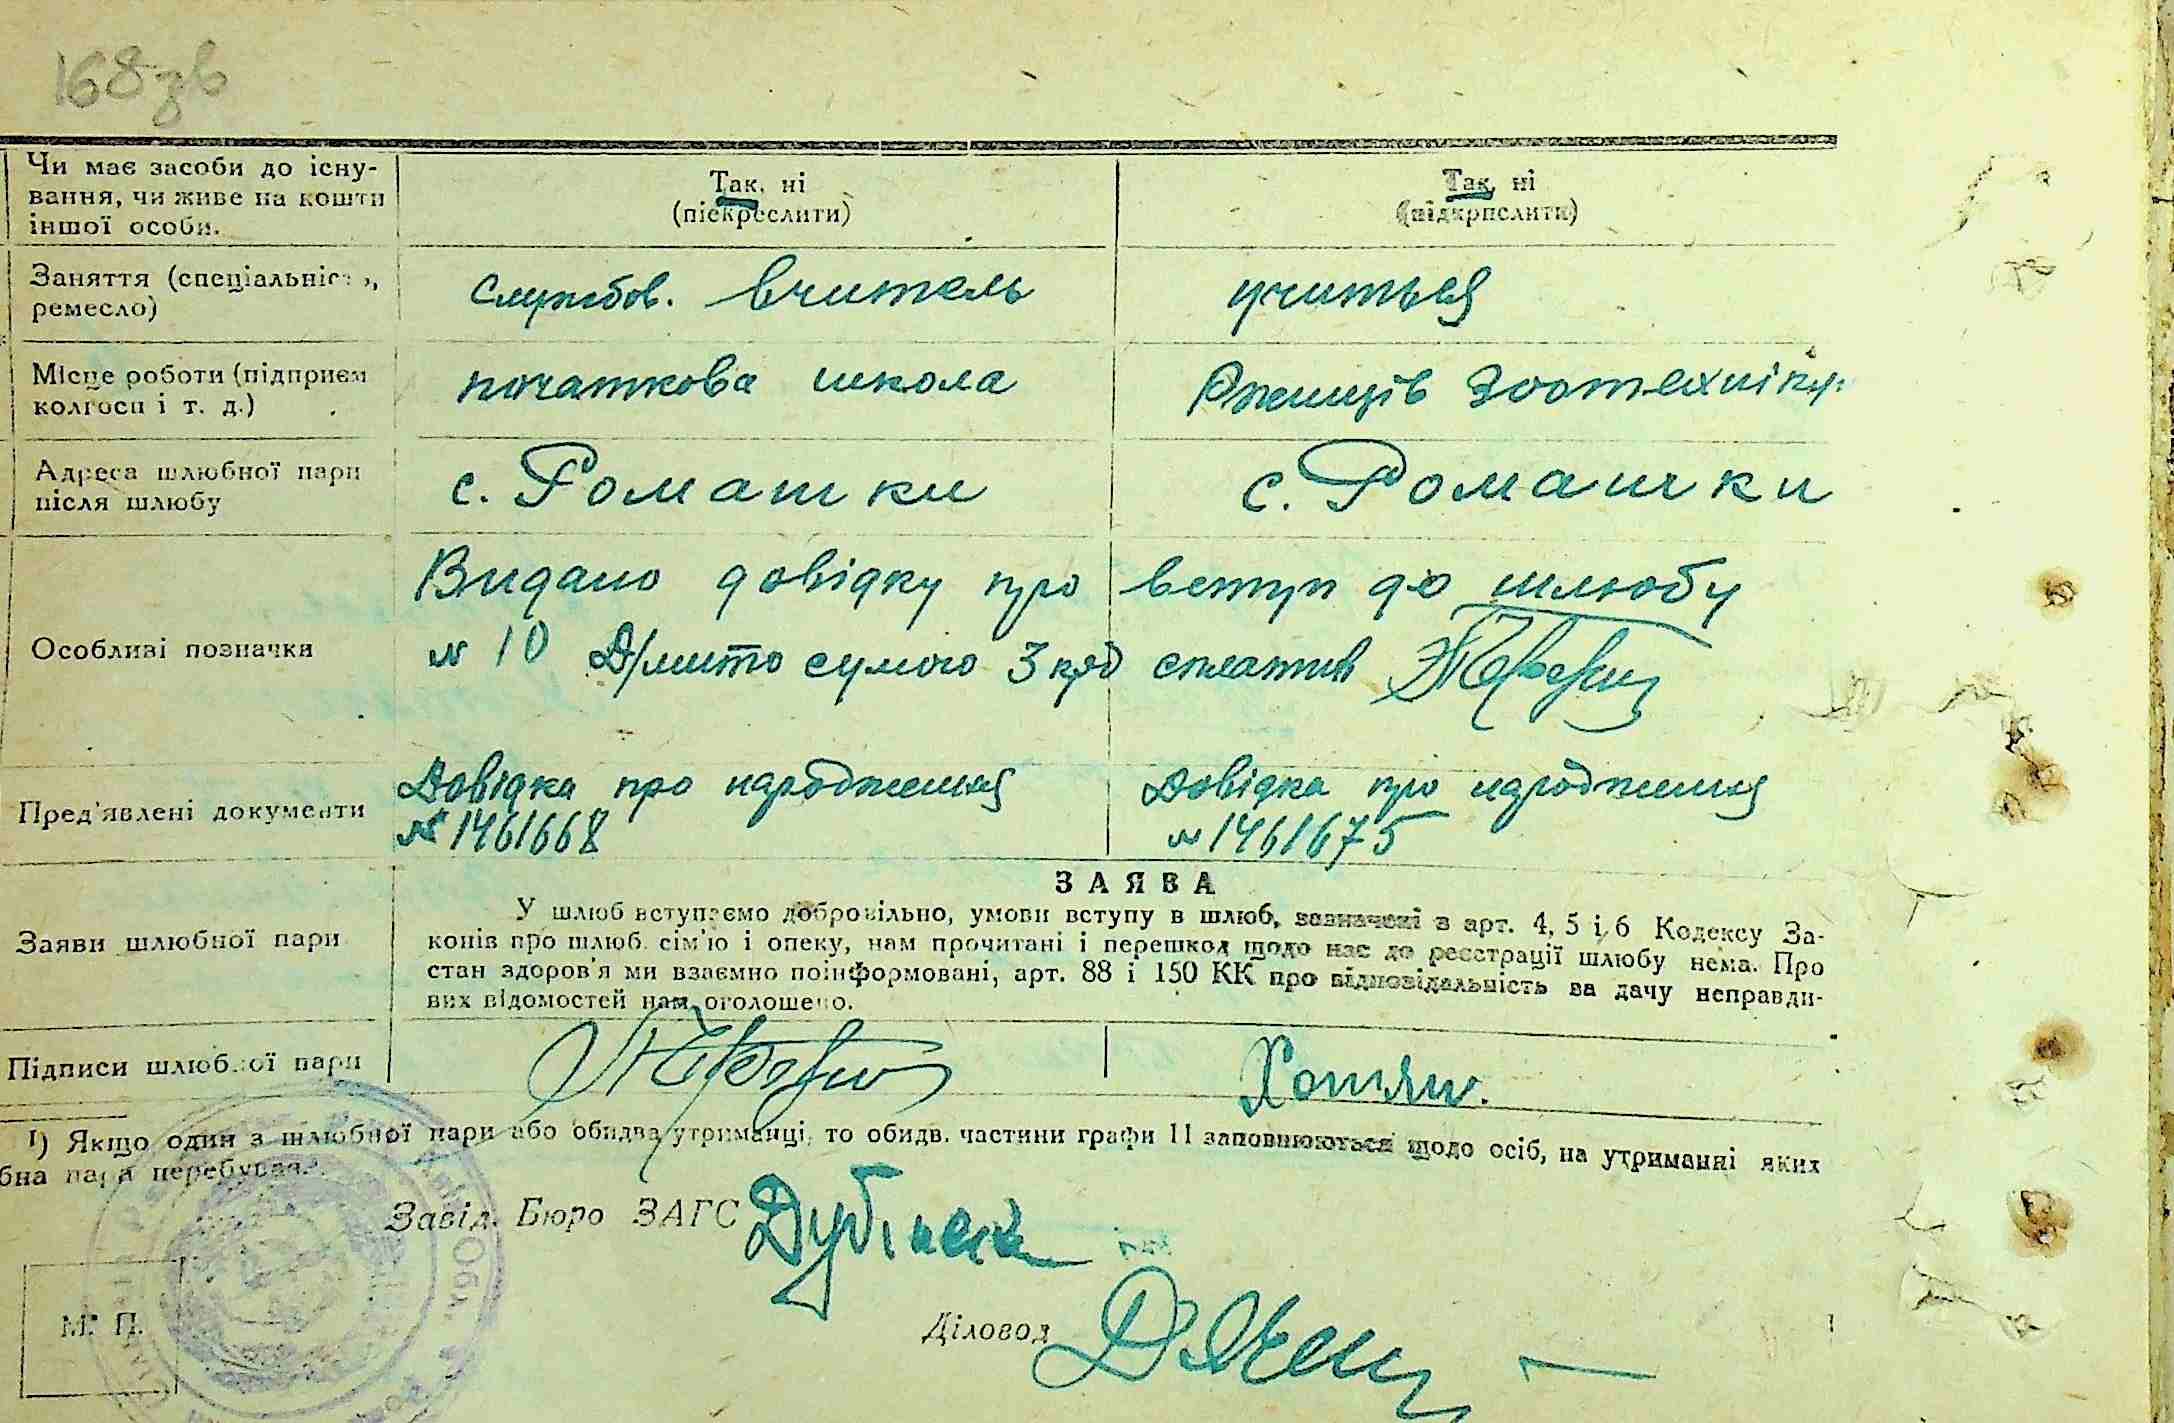 168зв
Чи має засоби до існу-
вання, чи живе на кошти
іншої особи.
Так, ні
(піскреслити)
Так, ні
(підкрпслити)
Заняття (спеціальніс
ремесло)
службов. вчитель
учиться
Місце роботи (підприєм
колгосп і т. д.)
початкова школа
зоотехнікум
Адреса шлюбної пари
після шлюбу
с. Ромашки
с. Ромашки
Особливі позначки
Видано довідку про вступ до шлюбу
№ 10 Д/мито сумою 3 крб сплатив
Пред'явлені документи
Довідка про народження
№ 1461668
Довідка про народження
№ 1461675
ЗАЯВА
Заяви шлюбної пари
У шлюб вступаємо добровільно, умови вступу в шлюб, зазначені в арт. 4, 5 і 6 Кодексу За-
конів про шлюб. сім'ю і опеку, нам прочитані і перешкод щодо нас до реєстрації шлюбу нема. Про
стан здоров'я ми взаємно поінформовані, арт. 88 і 150 КК про відповідальність за дачу неправди-
вих відомостей нам оголошено.
Підписи шлюбної пари
Хотян.
¹) Якщо один з шлюбної пари або обидва утриманці, то обидв. частини графи 11 заповнюються щодо осіб, на утриманні яких
бна пара перебуває.
Завід. Бюро ЗАГС
Діловод
М. П.